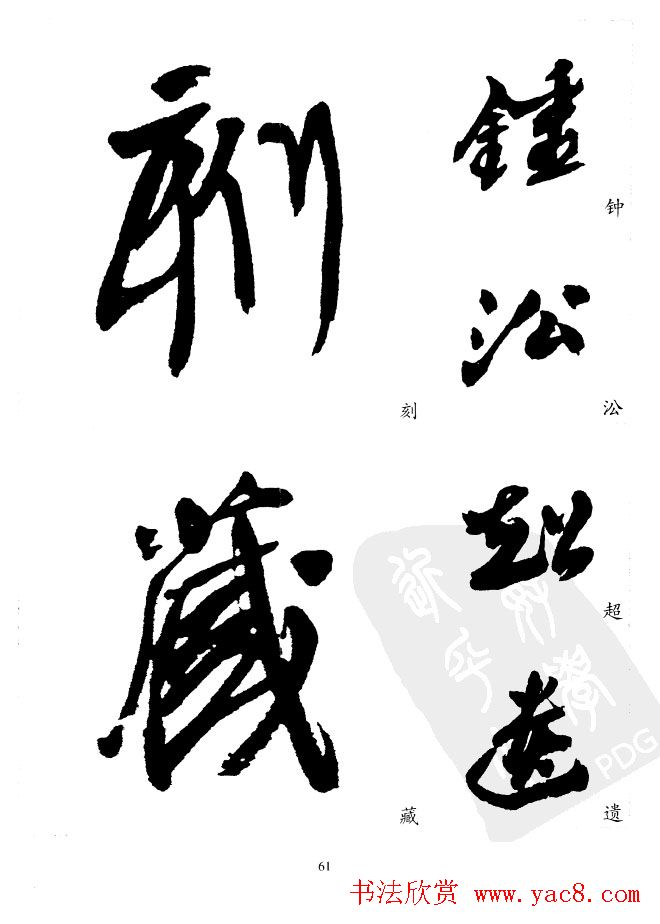 鍾
钟
沿
㳂
超
超
遗
遗
刻
刻
藏
藏
61
书法欣赏 www.yac8.com
PDG